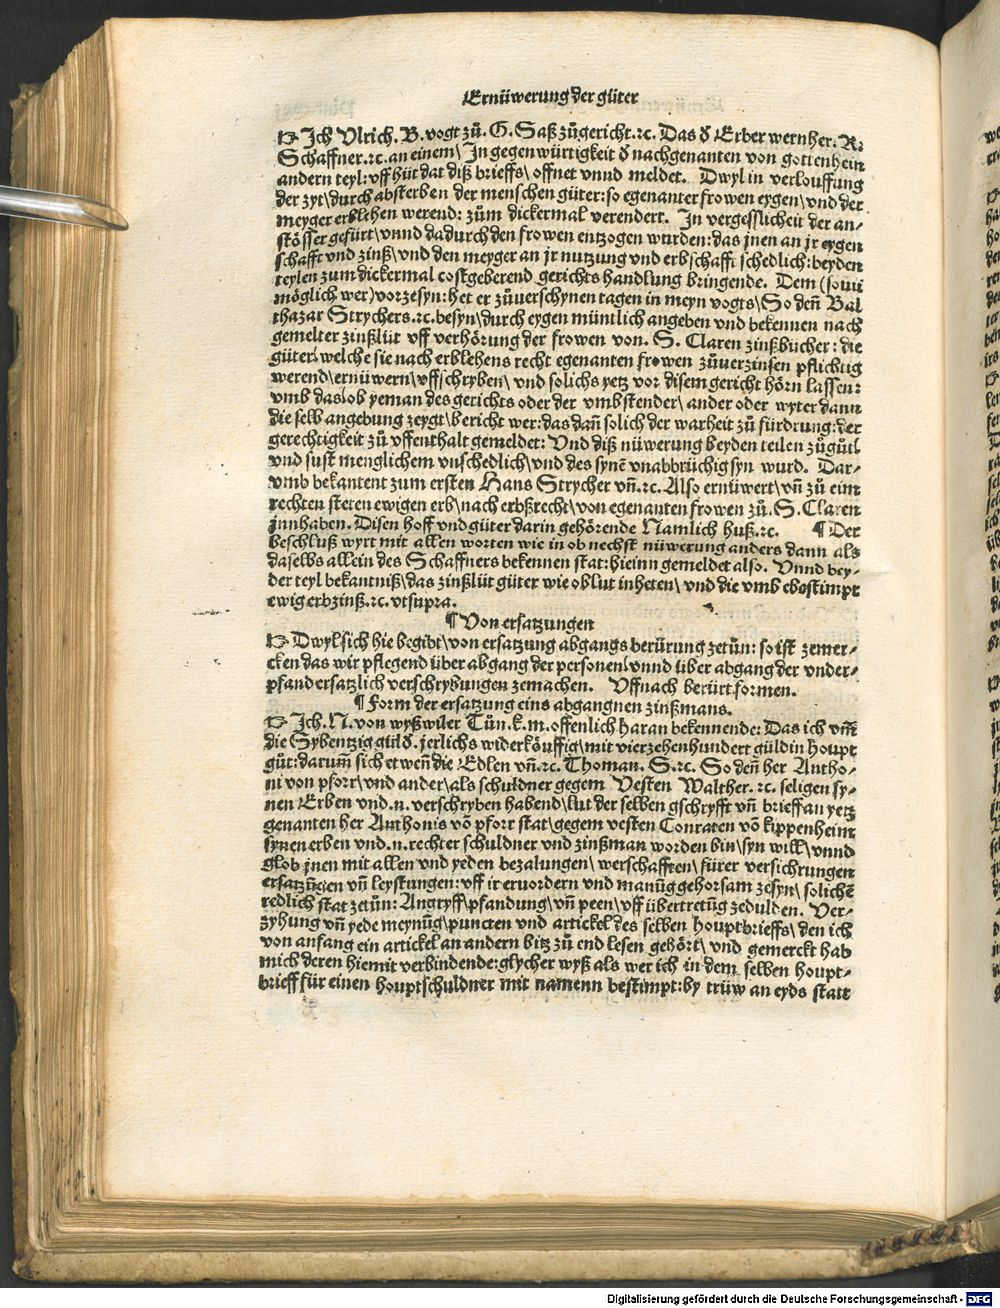 Ernüwerung der güter
☞ Jch Vlrich. B. vogt zů. G. Saß zůgericht. ⁊c. Das ð Erber wernher. R.
Schaffner. ⁊c. an einem \ Jn gegenwürtigkeit ð nachgenanten von gottenhein
andern teyl: vff hüt dat diß brieffs \ offnet vnnd meldet. Dwyl in verlouffung
der zyt \ durch absterben der menschen güter: so egenanter frowen eygen \ vnd der
meyger erblehen werend: zům dickermal verendert. Jn vergesslicheit der an⸗
stösser gefürt \ vnnd dadurch den frowen entzogen wurden: das jnen an jr eygen
schafft vnd zinß \ vnd den meyger an jr nutzung vnd erbschafft schedlich: beyden
teylen zum dickermal costgeberend gerichts handlung bringende. Dem (souil
möglich wer) vorzesyn: het er zůuerschynen tagen in meyn vogts \ So deñ Bal
thazar Strychers. ⁊c. besyn \ durch eygen müntlich angeben vnd bekennen nach
gemelter zinßlüt vff verhörung der frowen von. S. Claren zinßbücher: die
güter \ welche sie nach erblehens recht egenanten frowen zůuerzinsen pflichtig
werend \ ernüwern \ vffschryben \ vnd solichs yetz vor disem gericht hörn lassen:
vmb das \ ob yeman des gerichts oder der vmbstender \ ander oder wyter dann
die selb angebung zeygt \ bericht wer: das dañ solich der warheit zů fürdrung: der
gerechtigkeit zů vffenthalt gemeldet: Vnd diß nüwerung beyden teilen zůgůtl
vnd sust menglichem vnschedlich \ vnd des synẽ vnabbrüchig syn wurd. Dar⸗
vmb bekantent zum ersten Hans Strycher vñ. ⁊c. Also ernüwert \ vñ zů eim
rechten steten ewigen erb \ nach erbßrecht \ von egenanten frowen zů. S. Claren
jnnhaben. Disen hoff vnd güter darin gehörende Namlich huß. ⁊c. ¶ Der
beschluß wyrt mit allen worten wie in ob nechst nüwerung anders dann als
daselbs allein des Schaffners bekennen stat: hieinn gemeldet also. Vnnd bey⸗
der teyl bekantniß \ das zinßlüt güter wie oblut inheten \ vnd die vmb ebestimpt
ewig erbzinß. ⁊c. vtsupra.
¶ Von ersatzungen
☞ Dwyl sich hie begibt \ von ersatzung abgangs berürung zetůn: so ist zemer⸗
cken das wir pflegend über abgang der personen \ vnnd über abgang der vnder⸗
pfand ersatzlich verschrybungen zemachen. Vffnach berürt formen.
¶ Form der ersatzung eins abgangnen zinßmans.
☞ Jch. N. von wyßwiler Tůn. k. m. offenlich haran bekennende: Das ich vm̃
die Sybentzig gulð. jerlichs widerköuffig \ mit vierzehenhundert güldin houpt
gůt: darum̃ sich etweñ die Edlen vñ. ⁊c. Thoman. S. ⁊c. So deñ her Antho⸗
ni von pforr \ vnd ander \ als schuldner gegem Vesten Walther. ⁊c. seligen sy⸗
nen Erben vnd. n. verschryben habend \ lut der selben gschryfft vñ brieff an yetz
genanten her Anthonis võ pforr stat \ gegem vesten Conraten võ kippenheim
synen erben vnd. n. rechter schuldner vnd zinßman worden bin \ syn will \ vnnd
glob jnen mit allen vnd yeden bezalungen \ werschafften \ fürer versichrungen
ersatzũgen vñ leystungen: vff ir eruordern vnd manũg gehorsam zesyn \ solichẽ
redlich stat zetůn: Angryff \ pfandung \ vñ peen \ vff übertretũg zedulden. Ver⸗
zyhung vñ yede meynũg \ puncten vnd artickel des selben houptbrieffs \ den ich
von anfang ein artickel an andern bitz zů end lesen gehört \ vnd gemerckt hab
mich deren hiemit verbindende: glycher wyß als wer ich in dem selben houpt⸗
brieff für einen houptschuldner mit namenn bestimpt: by trüw an eyds statt
Digitalisierung gefördert durch die Deutsche Forschungsgemeinschaft - DFG